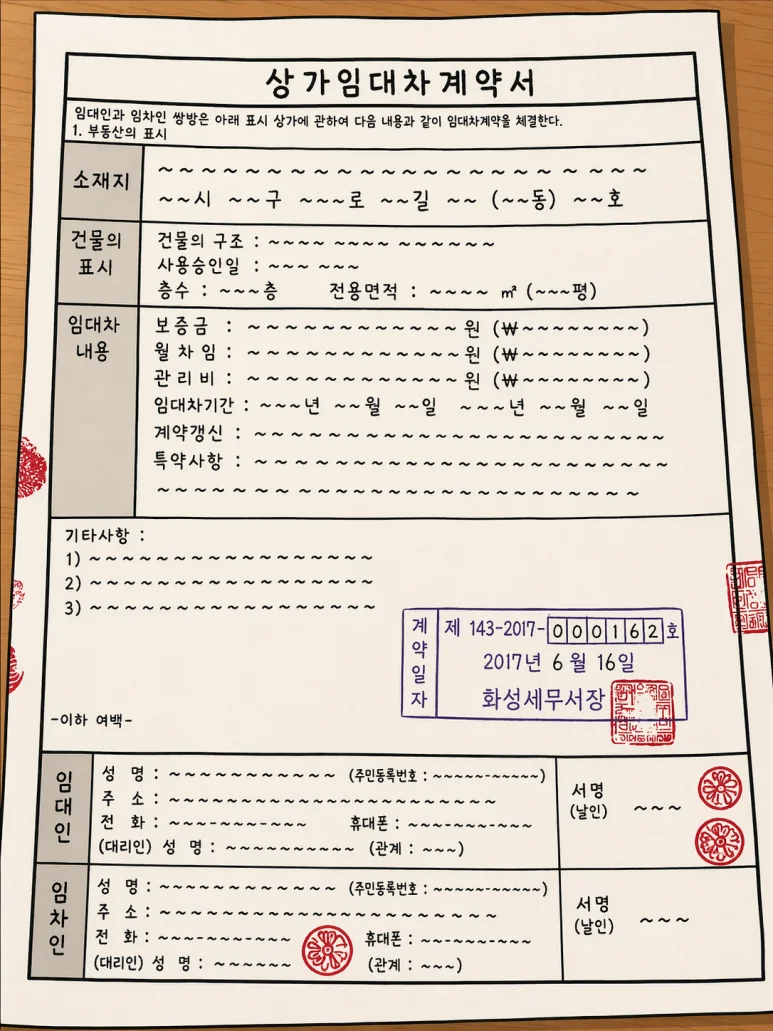 상가임대차계약서
임대인과 임차인 쌍방은 아래 표시 상가에 관하여 다음 내용과 같이 임대차계약을 체결한다.
1. 부동산의 표시
소재지
~~~~~~~~~~~~~~~~~~~~~
~~시 ~~구 ~~~로 ~~길 ~~ (~~동) ~~호
건물의 표시
건물의 구조 : ~~~~ ~~~~ ~~~~~~
사용승인일 : ~~~ ~~~
층수 : ~~~층 전용면적 : ~~~~ ㎡ (~~~평)
임대차 내용
보증금 : ~~~~~~~~~~~~원 (₩~~~~~~~~)
월차임 : ~~~~~~~~~~~~원 (₩~~~~~~~~)
관리비 : ~~~~~~~~~~~~원 (₩~~~~~~~~)
임대차기간 : ~~~년 ~~월 ~~일 ~~~년 ~~월 ~~일
계약갱신 : ~~~~~~~~~~~~~~~~~~~
특약사항 : ~~~~~~~~~~~~~~~~~~~
~~~~~~~~~~~~~~~~~~~~~~
기타사항 :
1) ~~~~~~~~~~~~~~~~~
2) ~~~~~~~~~~~~~~~~~
3) ~~~~~~~~~~~~~~~~~
계약일자
제 143-2017-000162호
2017년 6월 16일
화성세무서장
-이하 여백-
임대인
성 명 : ~~~~~~~~~~~ (주민등록번호 : ~~~~~-~~~~~)
주 소 : ~~~~~~~~~~~~~~~~~~~~~
전 화 : ~~~-~~~-~~~ 휴대폰 : ~~~-~~~-~~~
(대리인) 성 명 : ~~~~~~~~~~ (관계 : ~~~)
서명
(날인) ~~~
임차인
성 명 : ~~~~~~~~~~~~ (주민등록번호 : ~~~~~-~~~~~)
주 소 : ~~~~~~~~~~~~~~~~~~~~~
전 화 : ~~~-~~~-~~~ 휴대폰 : ~~~-~~~-~~~
(대리인) 성 명 : ~~~~~~ (관계 : ~~~)
서명
(날인) ~~~